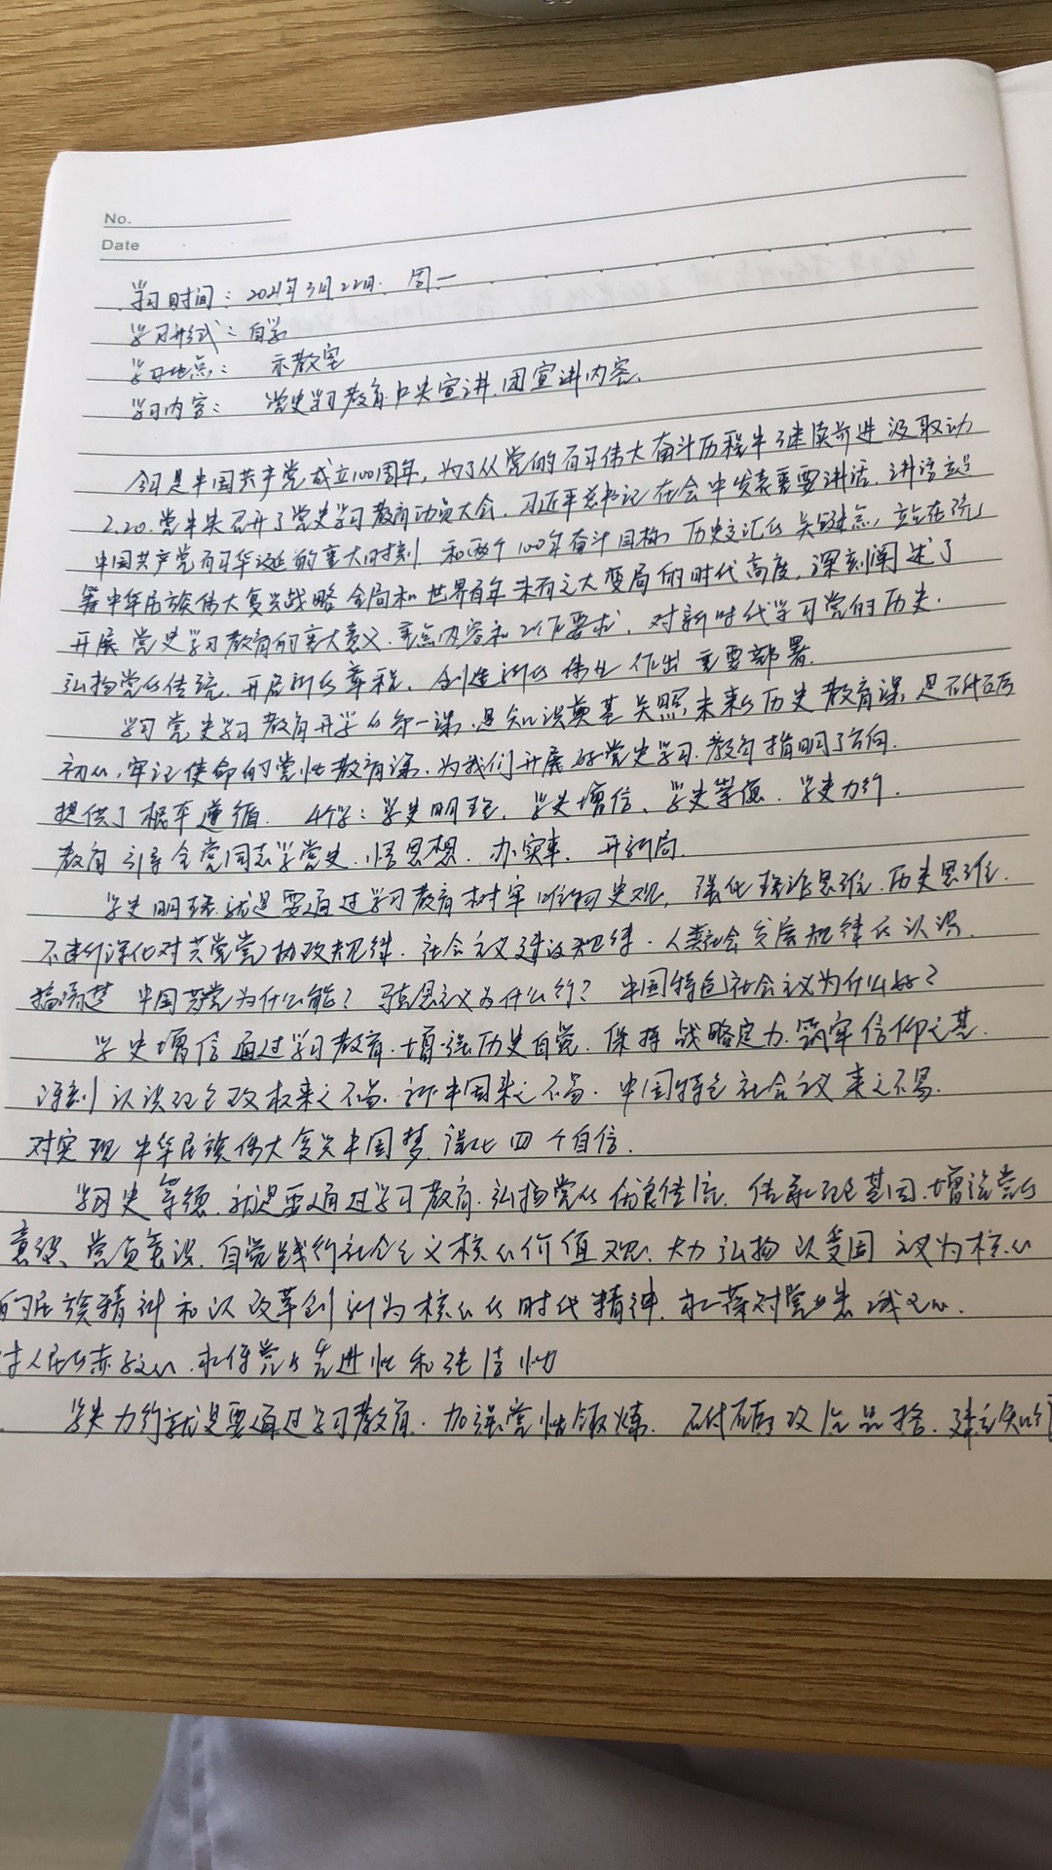 No.
Date
学习时间：2021年3月22日. 周一
学习形式：自学
学习地点： 示教室
学习内容： 党史学习教育中央宣讲团宣讲内容.
今年是中国共产党成立100周年，为了从党的百年伟大奋斗历程中继续前进汲取动
2.20.党中央召开了党史学习教育动员大会. 习近平总书记在会中发表重要讲话. 讲话立足
中国共产党百年华诞的重大时刻 和两个100年奋斗目标 历史交汇的关键点，立足在统
筹中华民族伟大复兴战略全局和世界百年未有之大变局的时代高度，深刻阐述了
开展党史学习教育的重大意义.重点内容和工作要求，对新时代学习党的历史.
弘扬党的传统. 开启新的章程. 创造新的伟业作出重要部署.
学习党史学习教育开学的第一课.是知识奠基关照未来的历史教育课，是不忘
初心,牢记使命的党性教育课.为我们开展好党史学习教育指明了方向.
提供了根本遵循. 4个学：学史明理、学史增信、学史崇德. 学史力行.
教育引导全党同志学党史.悟思想. 办实事. 开新局.
学史明理就是要通过学习教育树牢唯物史观，强化理论思维.历史思维.
不断深化对共产党执政规律. 社会主义建设规律. 人类社会发展规律的认识.
搞清楚 中国共产党为什么能？马克思主义为什么行？中国特色社会主义为什么好？
学史增信通过学习教育.增强历史自觉. 保持战略定力.筑牢信仰之基.
深刻认识红色政权来之不易.新中国来之不易. 中国特色社会主义来之不易.
对实现中华民族伟大复兴中国梦.强化四个自信.
学习史崇德.就是要通过学习教育.弘扬党的优良传统. 传承红色基因.增强党的
意识、党员意识. 自觉践行社会主义核心价值观. 大力弘扬以爱国主义为核心
的民族精神和以改革创新为核心的时代精神. 永葆对党忠诚之心.
对人民的赤子心.永保党的先进性和纯洁性
学史力行就是要通过学习教育. 加强党性锻炼.